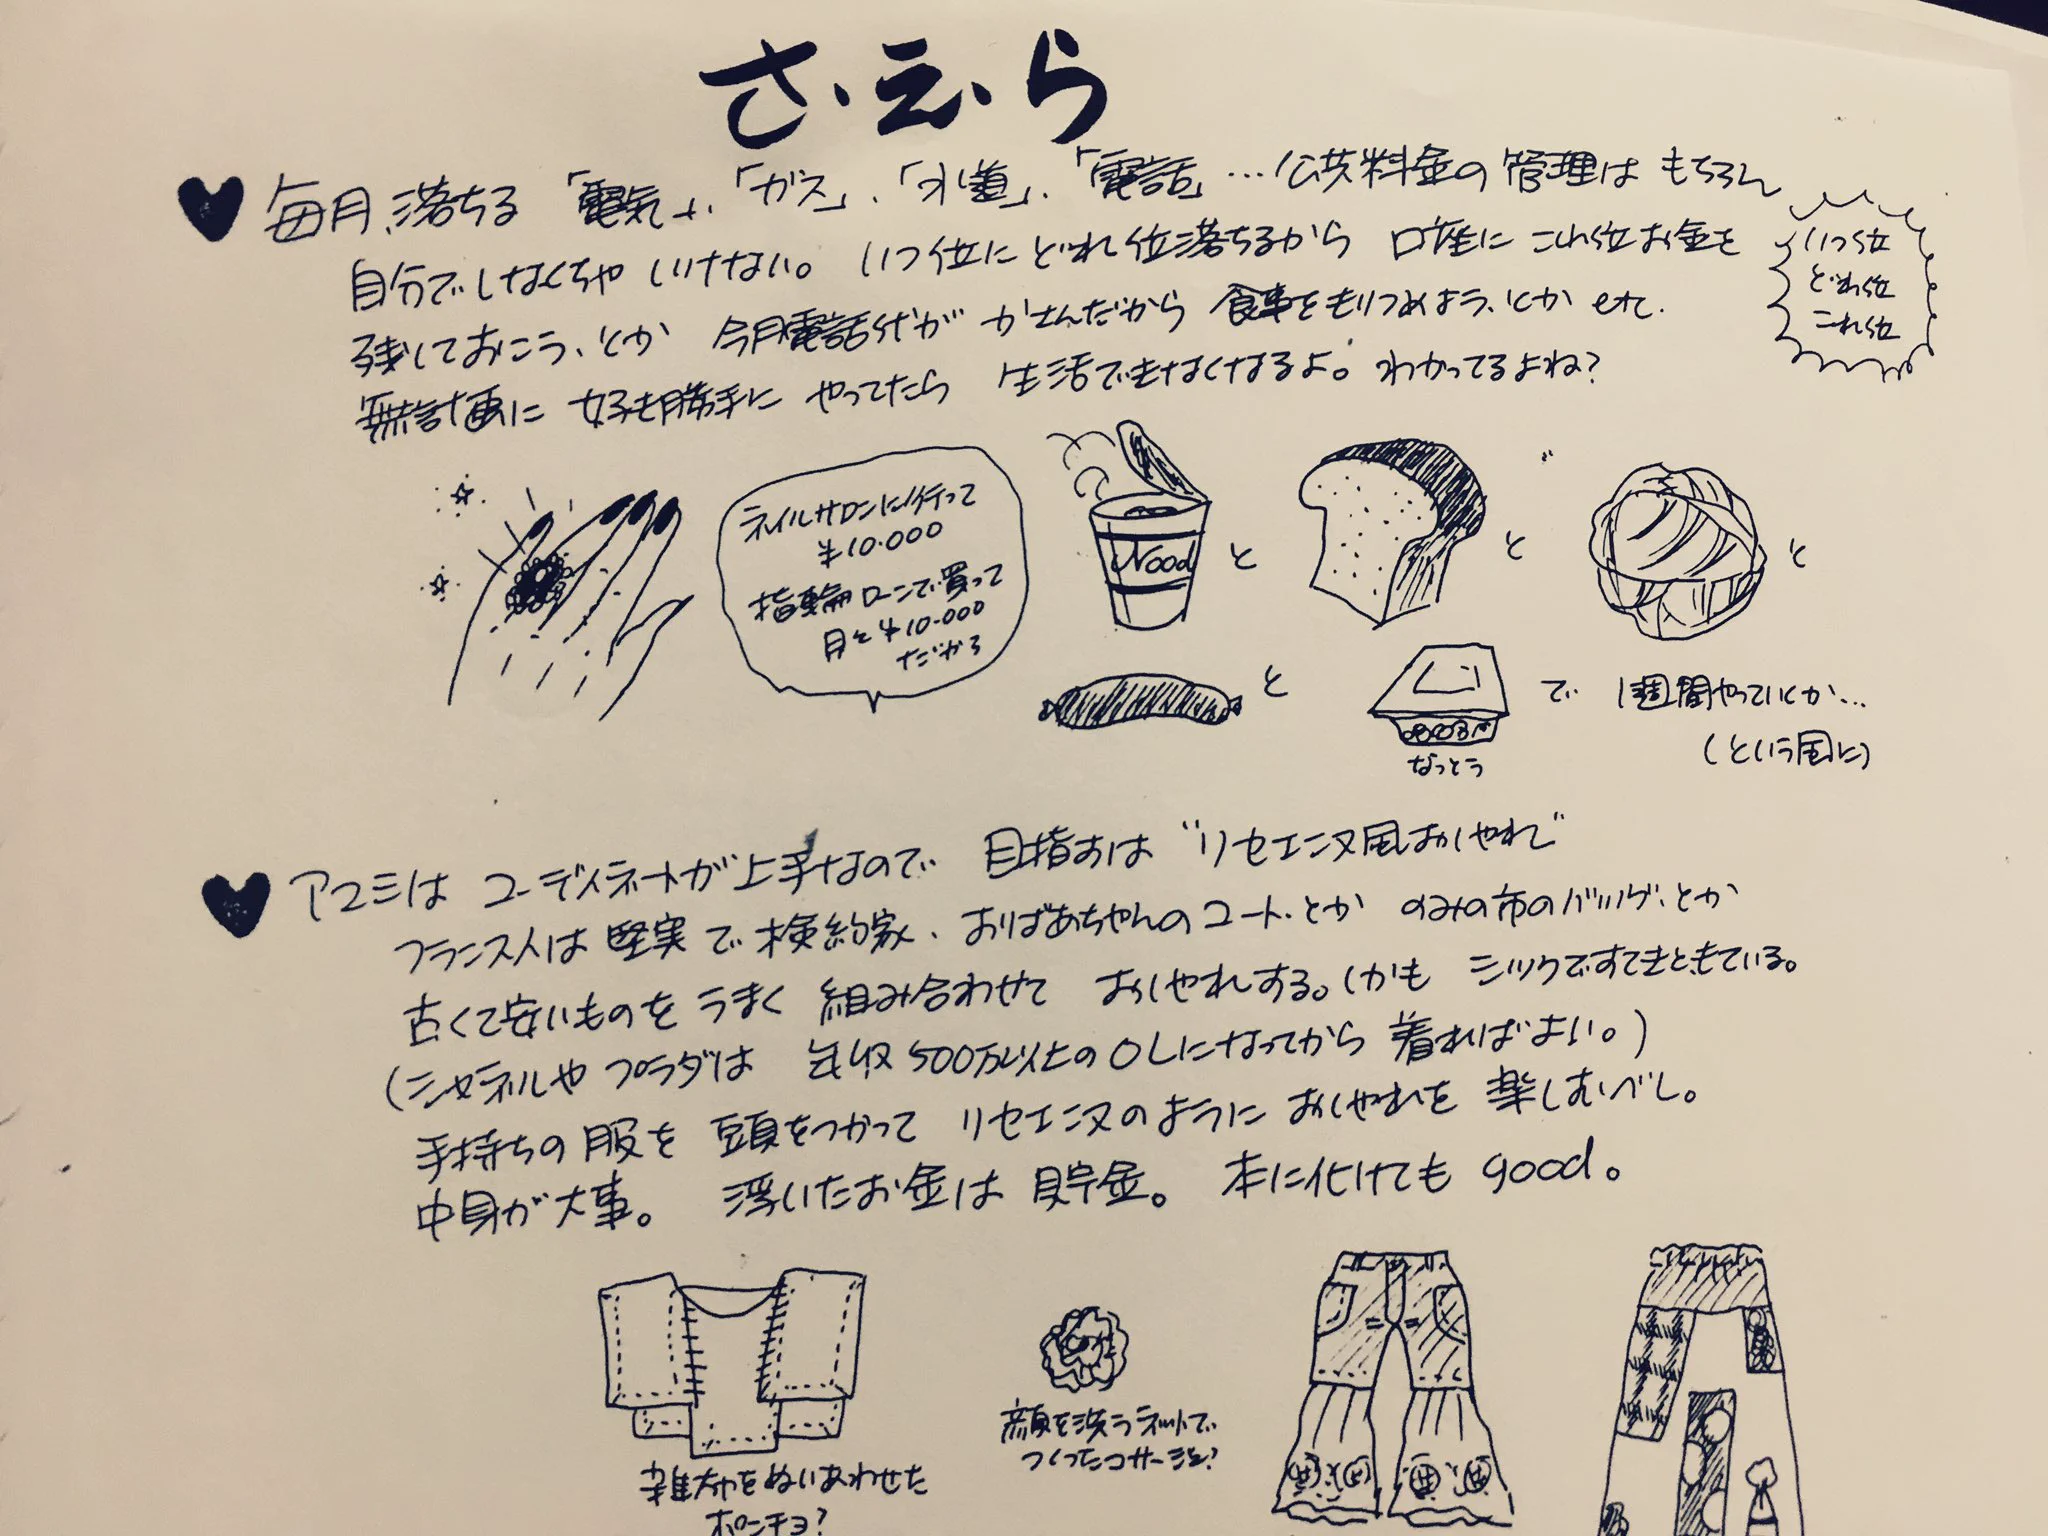 さ・え・ら
毎月落ちる「電気」、「ガス」、「水道」、「電話」…公共料金の管理はもちろん
自分でしなくちゃいけない。いつ位にどれ位落ちるから口座にこれ位お金を
残しておこう、とか今月電話代がかさんだから食事をきりつめよう、とかetc.
無計画に好き勝手にやってたら生活できなくなるよ。わかってるよね?
いつ位
どれ位
これ位
ネイルサロンに行って
¥10.000
指輪ローンで買って
月々¥10.000
だから
Nood
と
と
と
と
なっとう
で 1週間やっていくか…
(という風に)
アユミはコーディネートが上手なので目指すは"リセエンヌ風おしゃれ"
フランス人は堅実で検約家、おばあちゃんのコートとかのみの市のバッグとか
古くて安いものをうまく組み合わせておしゃれする。しかもシックですてきときている。
(シャネルやプラダは年収500万以上のOLになってから着ればよい。)
手持ちの服を頭をつかってリセエンヌのようにおしゃれを楽しむべし。
中身が大事。浮いたお金は貯金。本に化けてもgood。
雑布をぬいあわせた
ポンチョ?
顔を洗うネットで
つくったコサージュ?